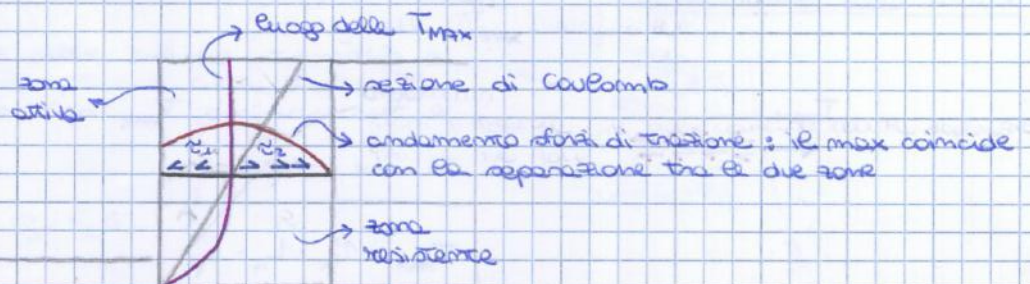 luogo delle TMAX
zona
attiva
sezione di Coulomb
andamento sforzi di trazione : il max coincide
con la separazione tra le due zone
τ1 τ2
zona
resistente